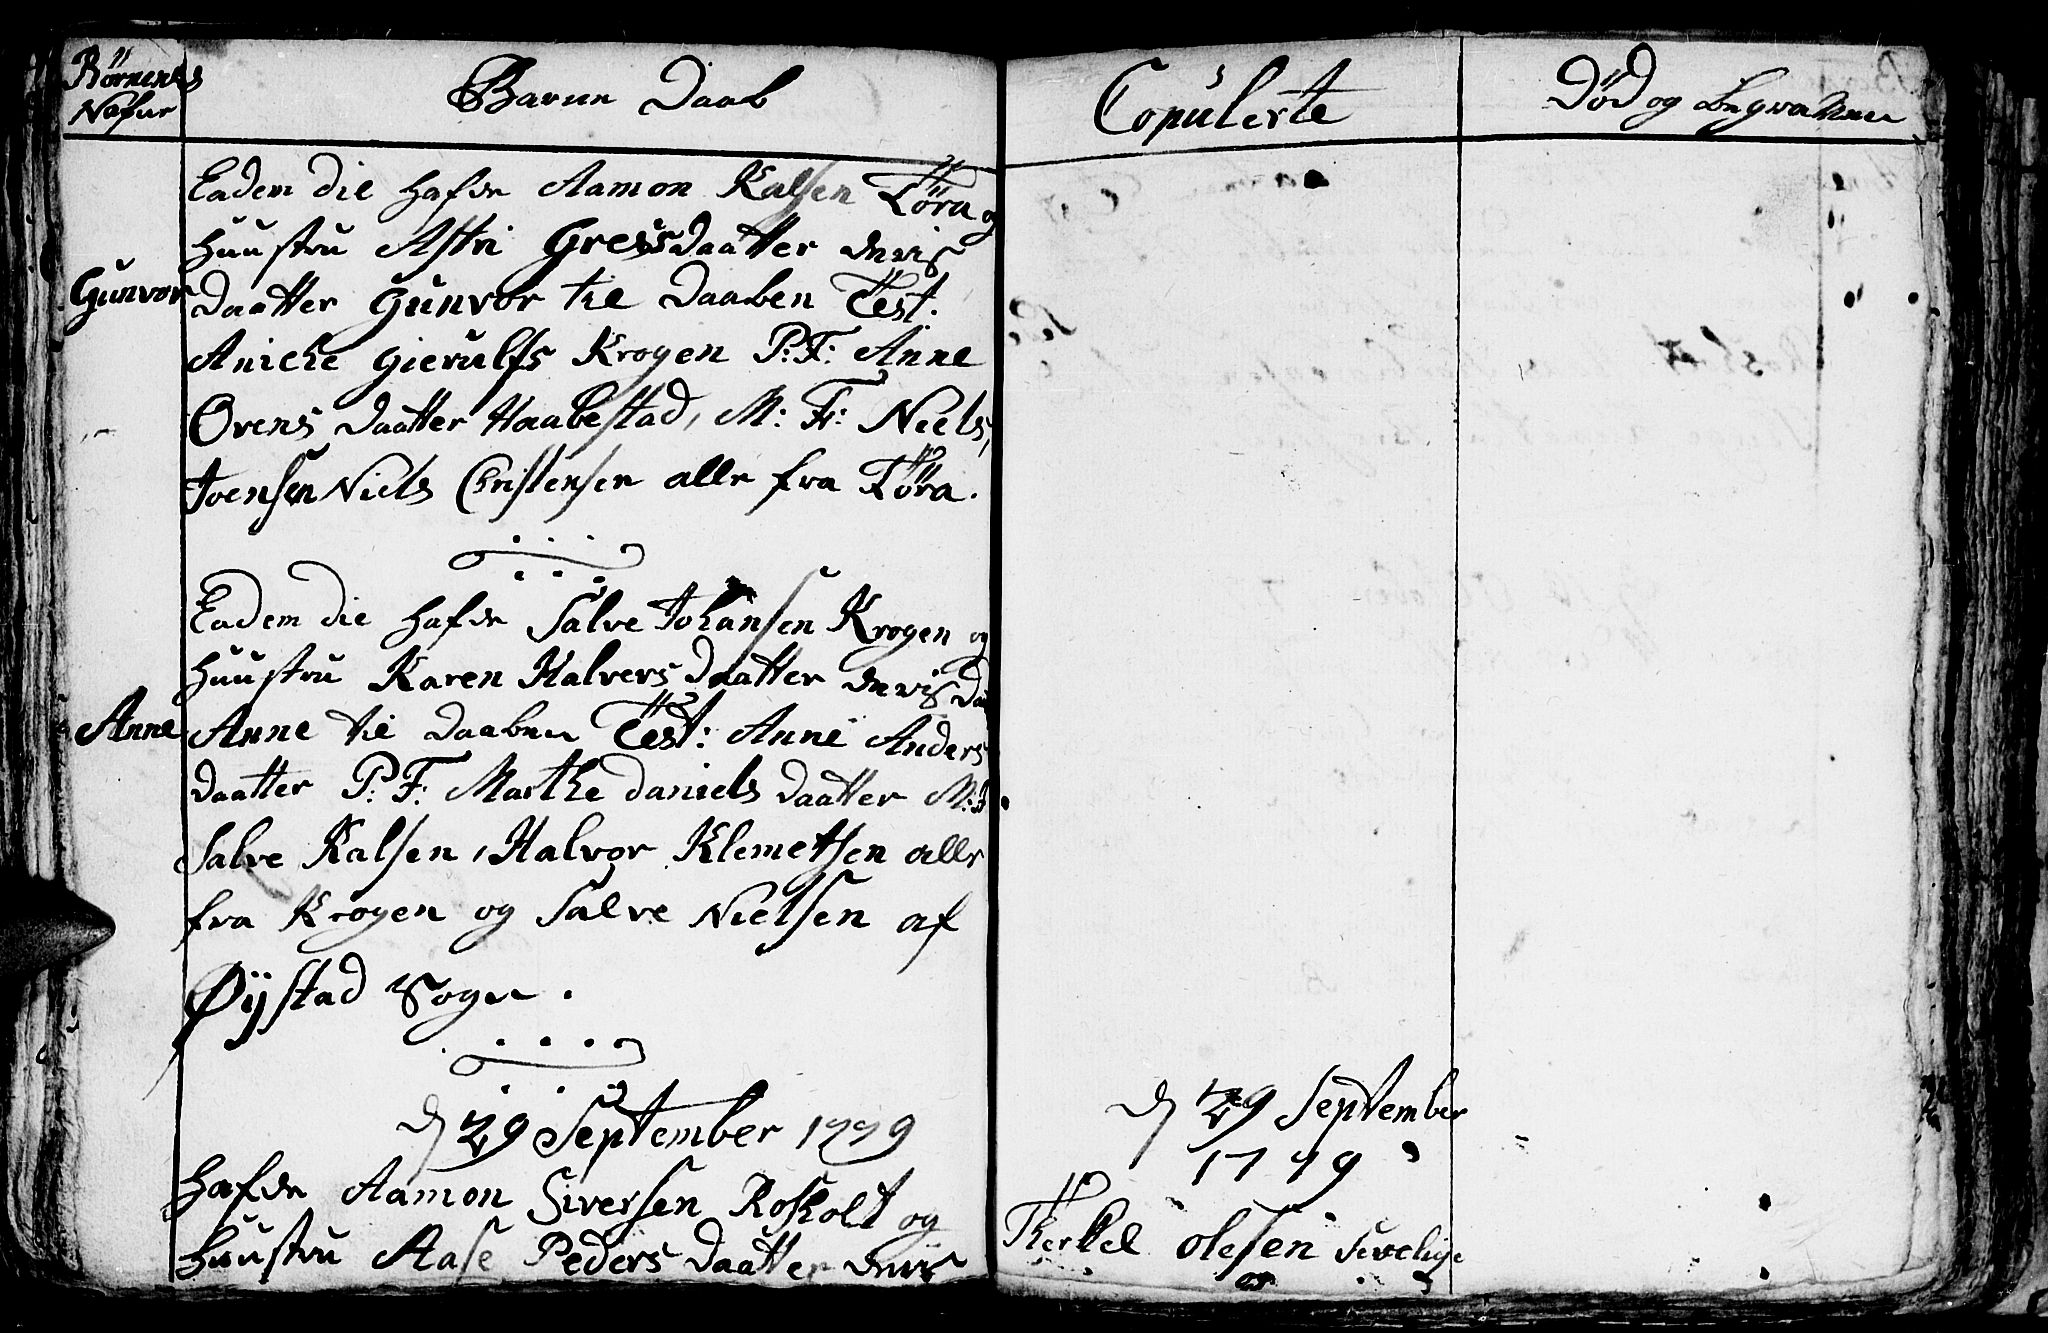 Børnenes
Nafne
Barne Daab
Eadem die hafde Aamon Kalsen Töra og
Huustru Astri Gressdaatter deris
Gunvor
Daatter Gunvor til Daaben Test.
Aniche Gierulfs Krogen P: F: Anne
Orens Daatter Haabestad, M: F: Niels
Joensen Niels Christensen alle fra Töra.
Eadem die hafde Salve Johansen Krogen og
Huustru Karen Halvers Daatter deris
Anne
Anne til Daaben Test: Anne Anders
Daatter P: F: Marthe Daniels Daatter M:
Salve Kalsen, Halvor Klemetsen alle
fra Krogen og Salve Nielsen af
Øÿstad Sogn.
d 29 September 1779
Hafde Aamon Siversen Rosholt og
Huustru Aase Peders Daatter deris
Copulerte
d 29 September
1779
Therkel Olesen
Död og Begravne